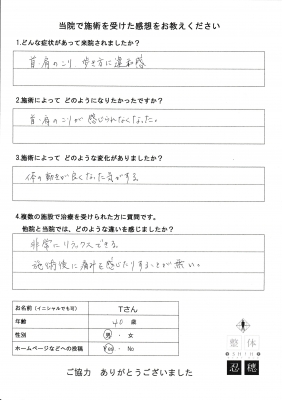 当院で施術を受けた感想をお教えください
1.どんな症状があって来院されましたか?
首・肩のこり 歩き方に違和感
2.施術によって どのようになりたかったですか?
首・肩のこりが 感じられなくなった。
3.施術によって どのような変化がありましたか?
体の動きが良くなった気がする。
4.複数の施設で治療を受けられた方に質問です。
他院と当院では、どのような違いを感じましたか?
非常にリラックスできる。
施術後に痛みを感じたりすることが無い。
お名前(イニシャルでも可) Tさん
年齢 40 歳
性別 男 ・ 女
ホームページなどへの投稿 Yes ・ No
ご協力 ありがとうございました
整体
忍穂